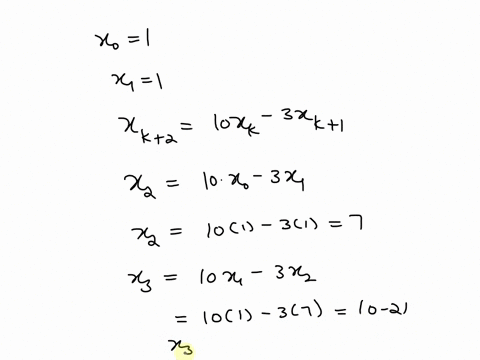 x₀ = 1
x₁ = 1
x_{k+2} = 10x_k - 3x_{k+1}
x₂ = 10·x₀ - 3x₁
x₂ = 10(1) - 3(1) = 7
x₃ = 10x₁ - 3x₂
= 10(1) - 3(7) = 10-21
x₃